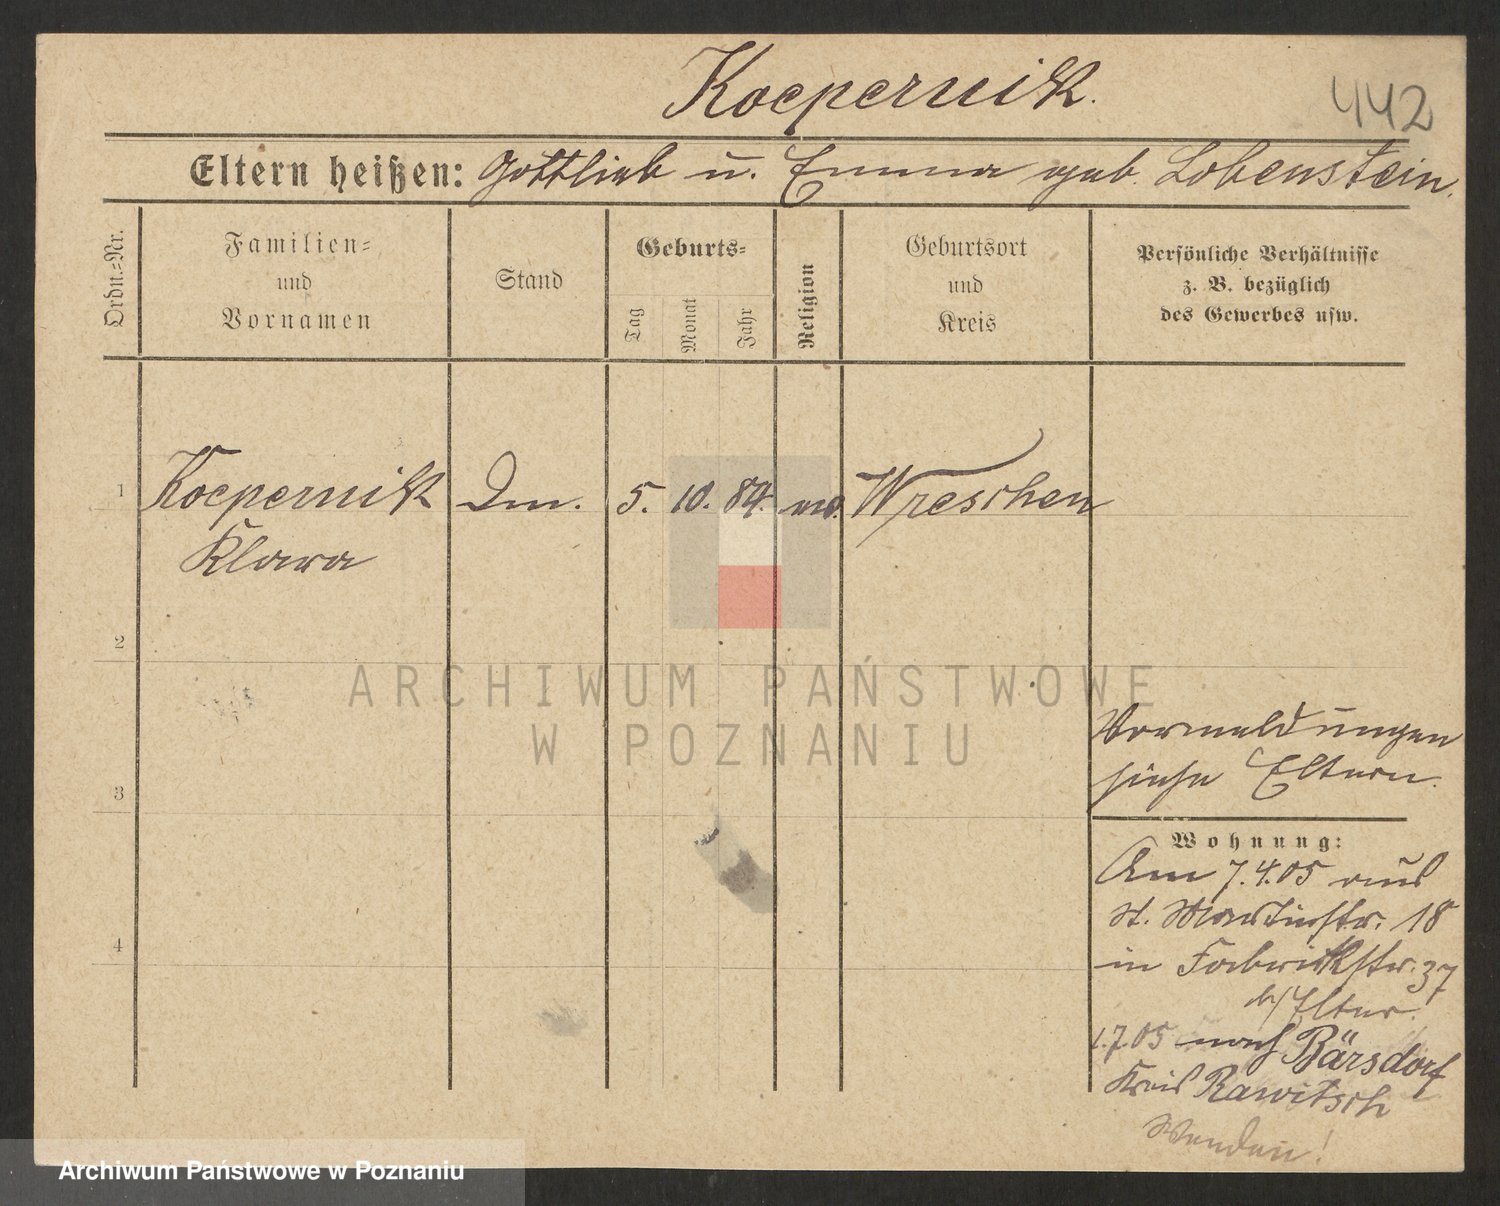 Koepernik.
442
Eltern heißen: Gottlieb u. Emma geb. Lobenstein.
Ordn.-Nr.
Familien-
und
Vornamen
Stand
Geburts-
Tag
Monat
Jahr
Religion
Geburtsort
und
Kreis
Persönliche Verhältnisse
z. B. bezüglich
des Gewerbes usw.
1 Koepernik 5. 10. 84. Wreschen
Klara
2
3
4
Vormeldungen
siehe Eltern.
Wohnung:
Am 7.4.05 aus
St. Martinstr. 18
in Fabrikstr. 37
b/Eltern.
1.7.05 nach Bärsdorf
Kreis Rawitsch
Wenden!
ARCHIWUM PAŃSTWOWE
W POZNANIU
Archiwum Państwowe w Poznaniu